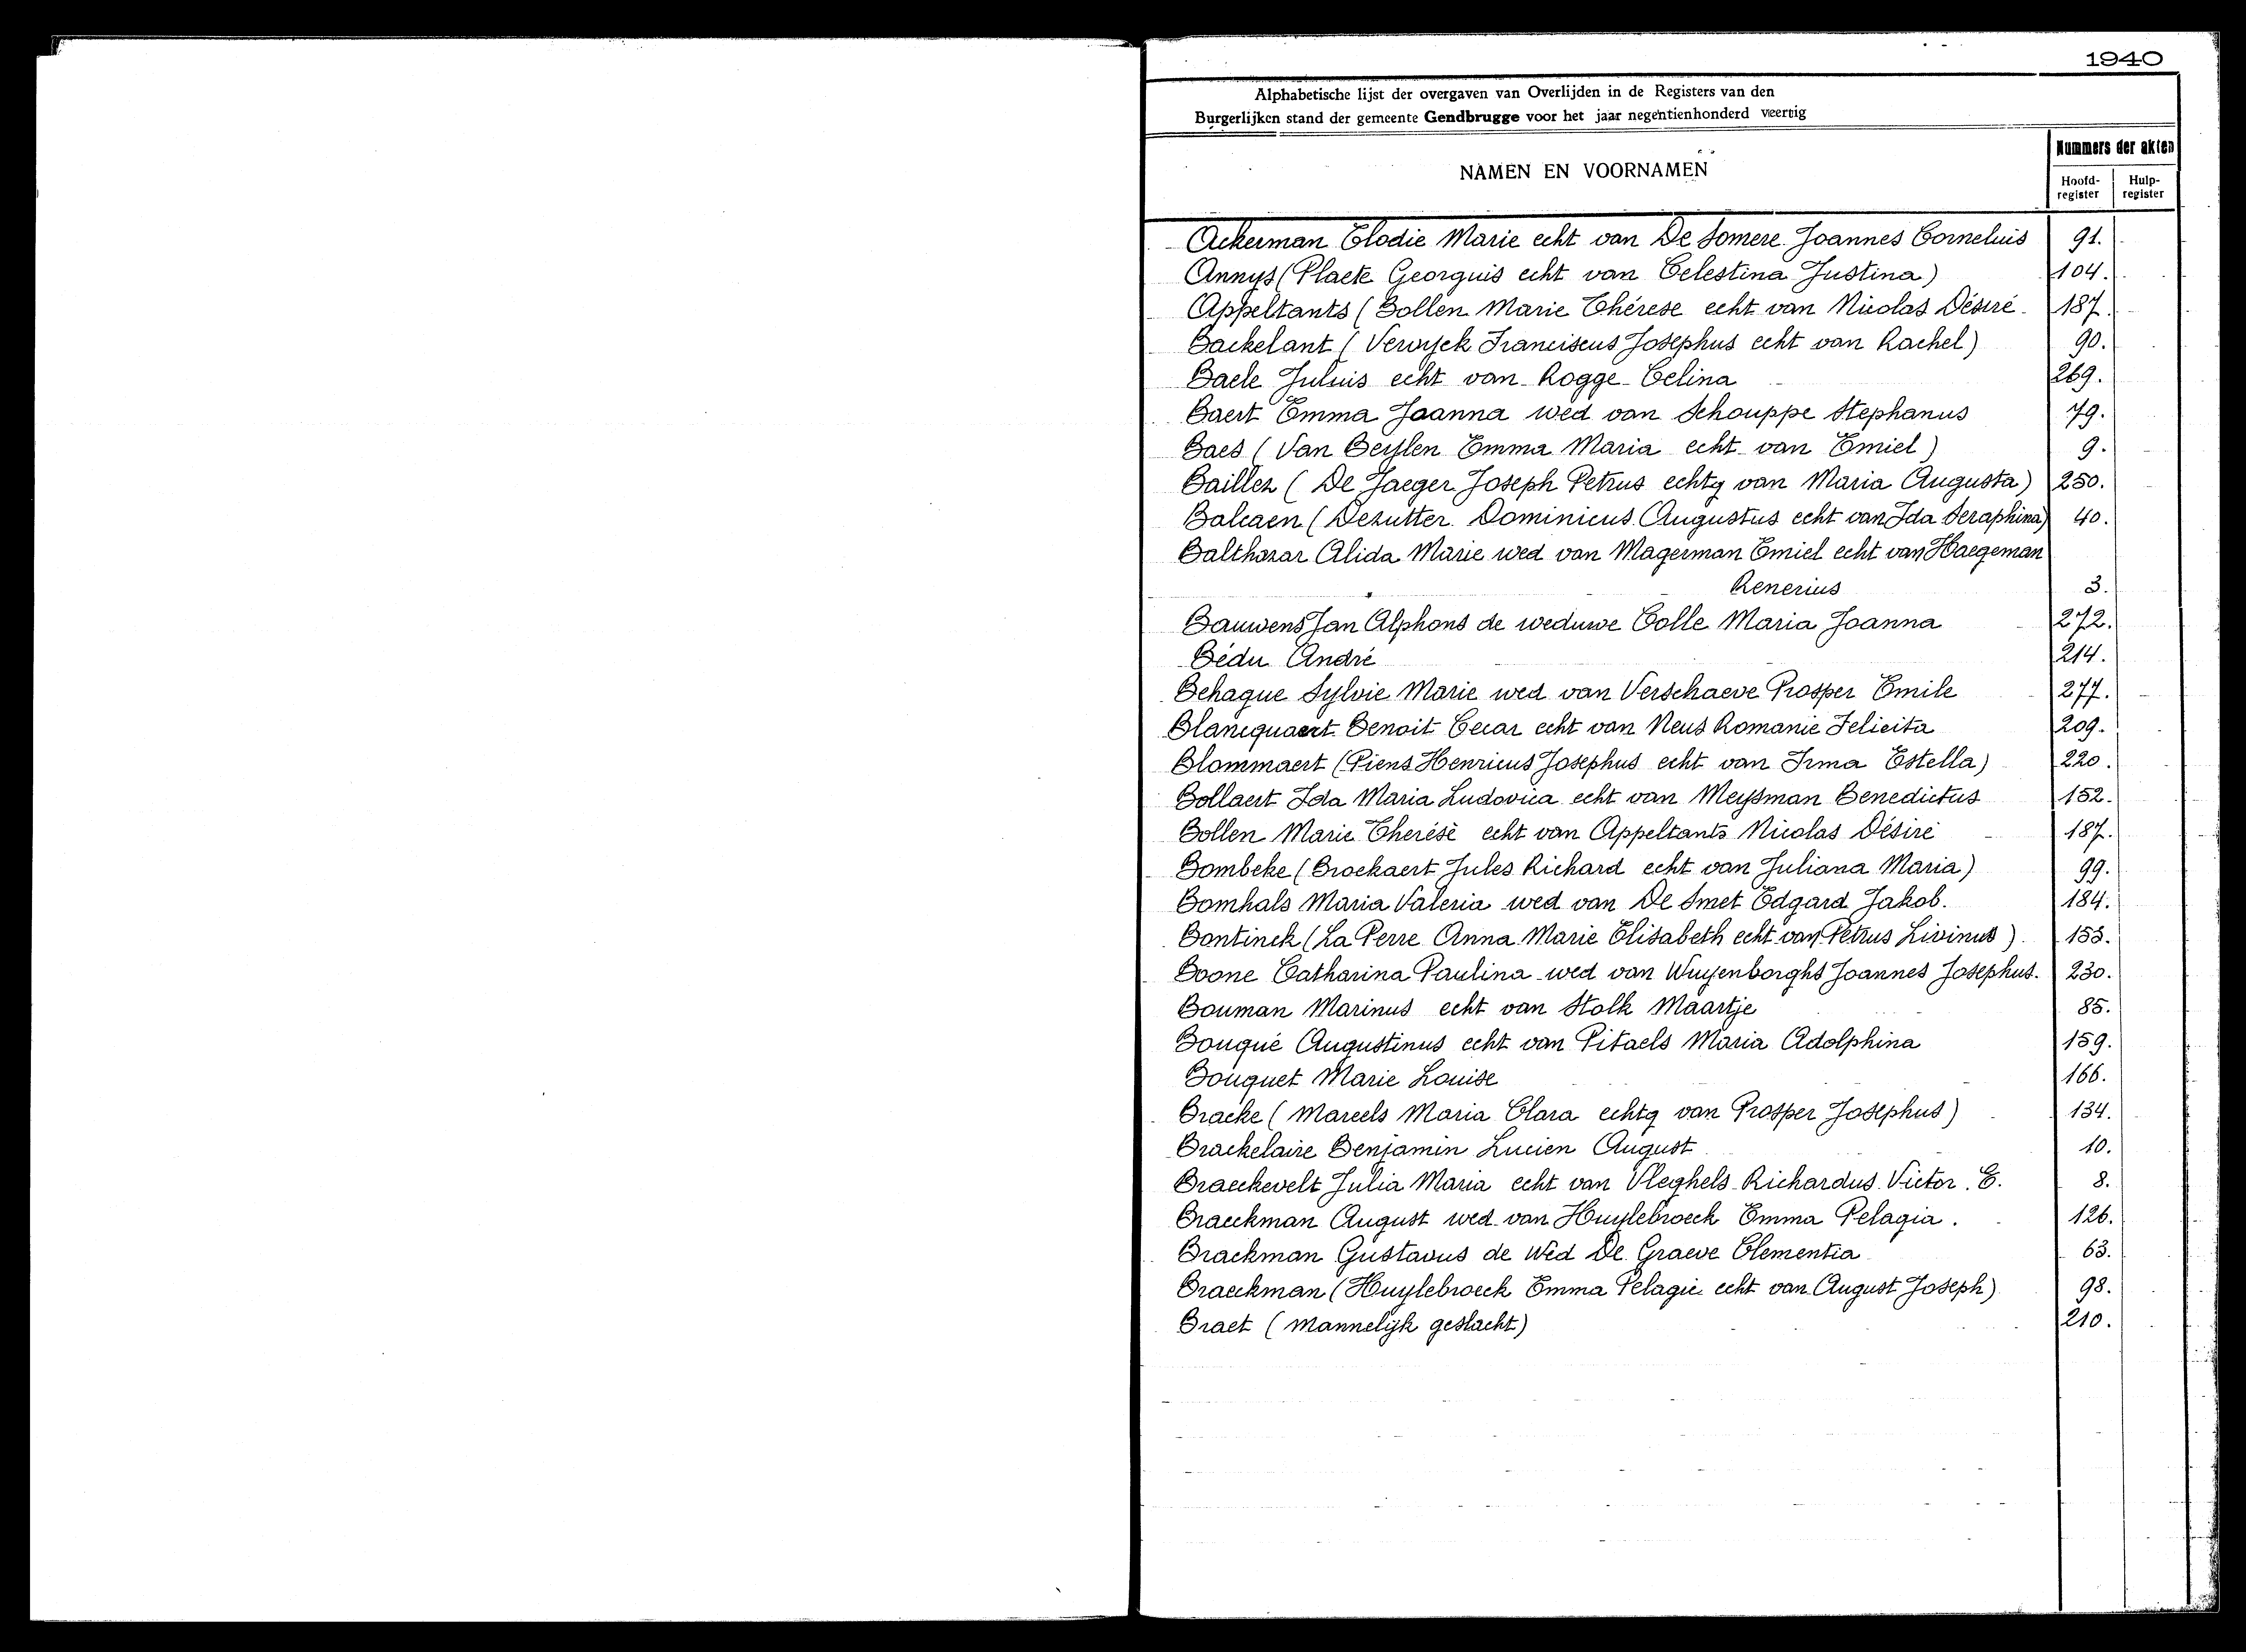 1940
Alphabetische lijst der overgaven van Overlijden in de Registers van den
Burgerlijken stand der gemeente Gendbrugge voor het jaar negentienhonderd veertig
NAMEN EN VOORNAMEN
Nummers der akten
Hoofd-register
Hulp-register
Ackerman Elodie Marie echt van De Somere Joannes Cornelius 91.
Annys (Plaete Georguis echt van Celestina Justina) 104.
Appeltants (Bollen Marie Thérese echt van Nicolas Désiré 187.
Backelant (Verwyck Franciscus Josephus echt van Rachel) 90.
Baele Julius echt van Rogge Celina 269.
Baert Emma Joanna wed van Schouppe Stephanus 79.
Baes (Van Beylen Emma Maria echt van Emiel) 9.
Baillez (De Jaeger Joseph Petrus echtg van Maria Augusta) 250.
Balcaen (Dezutter Dominicus Augustus echt van Ida Seraphina) 40.
Balthazar Alida Marie wed van Magerman Emiel echt van Haegeman
Renerius 3.
Bauwens Jan Alphons de weduwe Colle Maria Joanna 272.
Bédu André 214.
Behague Sylvie Marie wed van Verschaeve Prosper Emile 277.
Blancquaert Benoit Cecar echt van Neus Romanie Felicita 209.
Blommaert (Piens Henricus Josephus echt van Irma Estella) 220.
Bollaert Ida Maria Ludovica echt van Meysman Benedictus 152.
Bollen Marie Therésè echt van Appeltants Nicolas Désiré 187.
Bombeke (Broekaert Jules Richard echt van Juliana Maria) 99.
Bomhals Maria Valeria wed van De Smet Edgard Jakob. 184.
Bontinck (La Perre Anna Marie Elisabeth echt van Petrus Livinus). 153.
Boone Catharina Paulina wed van Wuyenborghs Joannes Josephus. 230.
Bouman Marinus echt van Stolk Maartje 85.
Bouqué Augustinus echt van Pitaels Maria Adolphina 159.
Bouquet Marie Louise 166.
Bracke (Mareels Maria Clara echtg van Prosper Josephus) 134.
Brackelaire Benjamin Lucien August 10.
Braeckevelt Julia Maria echt van Vleghels Richardus Victor. E. 8.
Braeckman August wed van Huylebroeck Emma Pelagia. 126.
Brackman Gustavus de Wed De Graeve Clementia 63.
Braeckman (Huylebroeck Emma Pelagie echt van August Joseph) 98.
Braet (Mannelijk geslacht) 210.